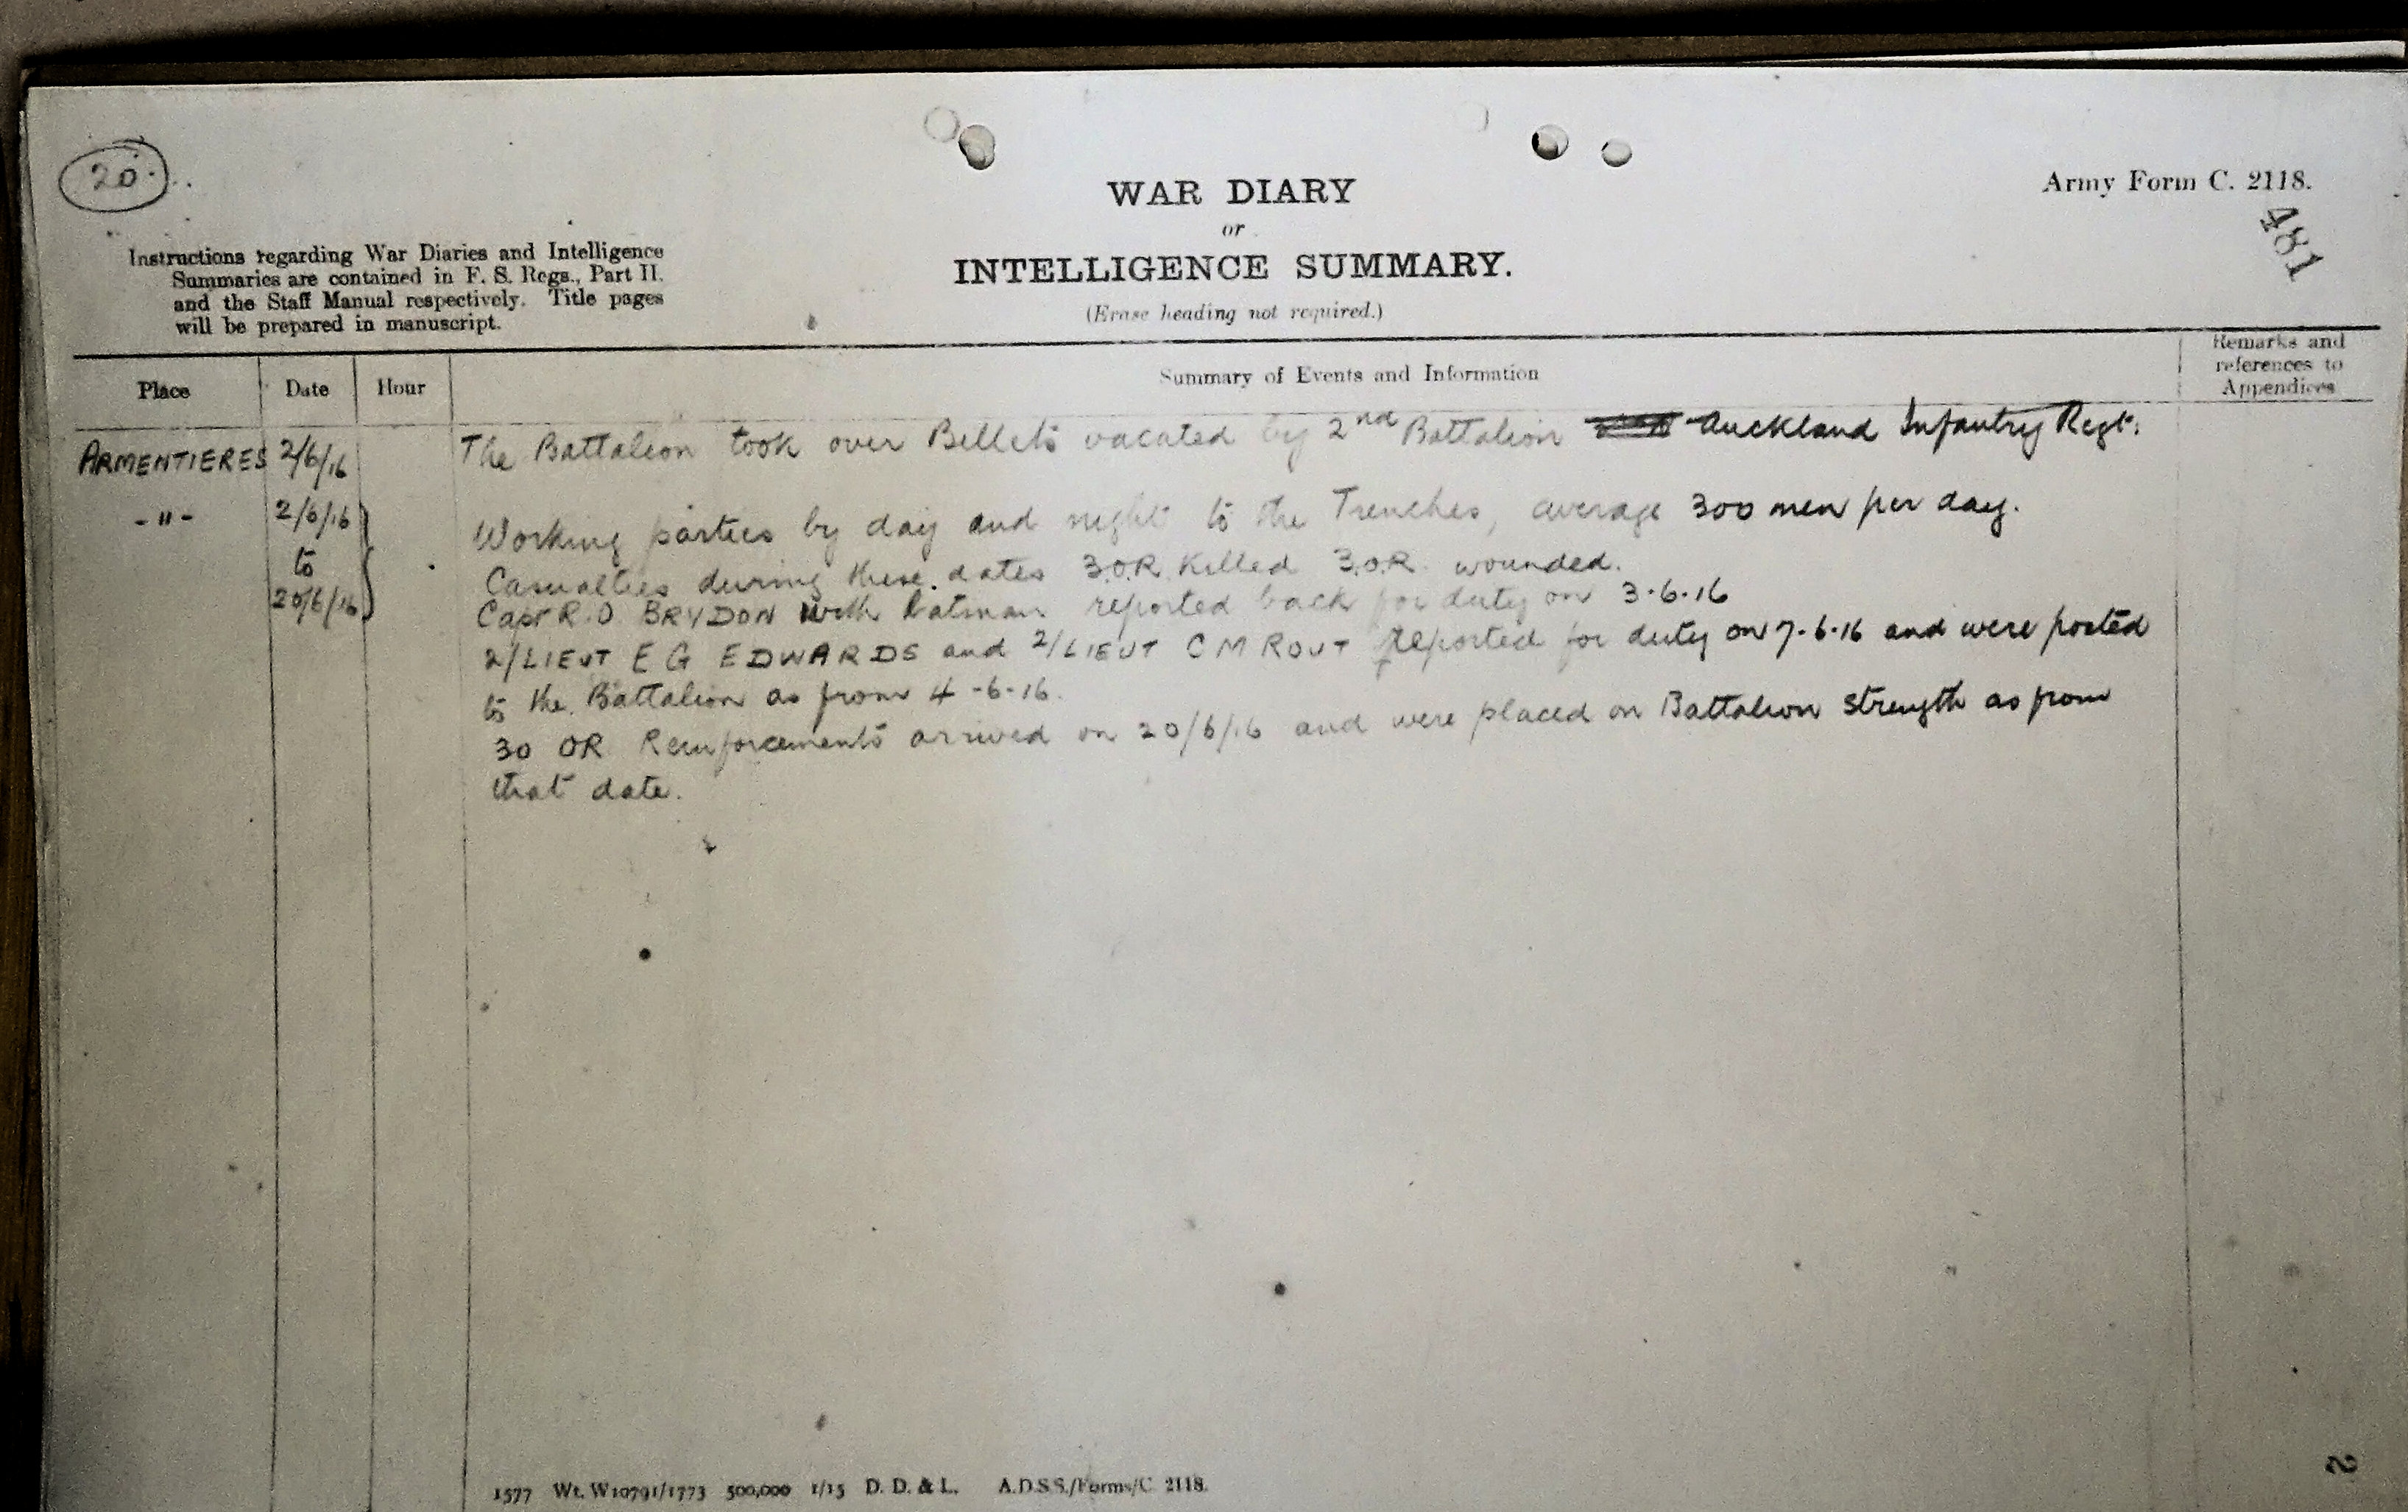 20.
WAR DIARY
or
INTELLIGENCE SUMMARY.
(Erase heading not required.)
Army Form C. 2118.
481
Instructions regarding War Diaries and Intelligence
Summaries are contained in F. S. Regs., Part II.
and the Staff Manual respectively. Title pages
will be prepared in manuscript.
Place Date Hour Summary of Events and Information Remarks and
references to
Appendices
ARMENTIERES 2/6/16 The Battalion took over Billets vacated by 2nd Battalion Auckland Infantry Regt.
-"- 2/6/16 Working parties by day and night to the Trenches, average 300 men per day.
to Casualties during these dates 3.O.R. Killed 3.O.R. wounded.
20/6/16 Capt R.O. BRYDON with batman reported back for duty on 3.6.16
2/LIEUT E G EDWARDS and 2/LIEUT C M ROUT reported for duty on 7.6.16 and were posted
to the Battalion as from 4-6-16.
30 OR Reinforcements arrived on 20/6/16 and were placed on Battalion strength as from
that date.
1577 Wt. W10791/1773 500,000 1/15 D. D. & L. A.D.S.S./Forms/C. 2118.
2